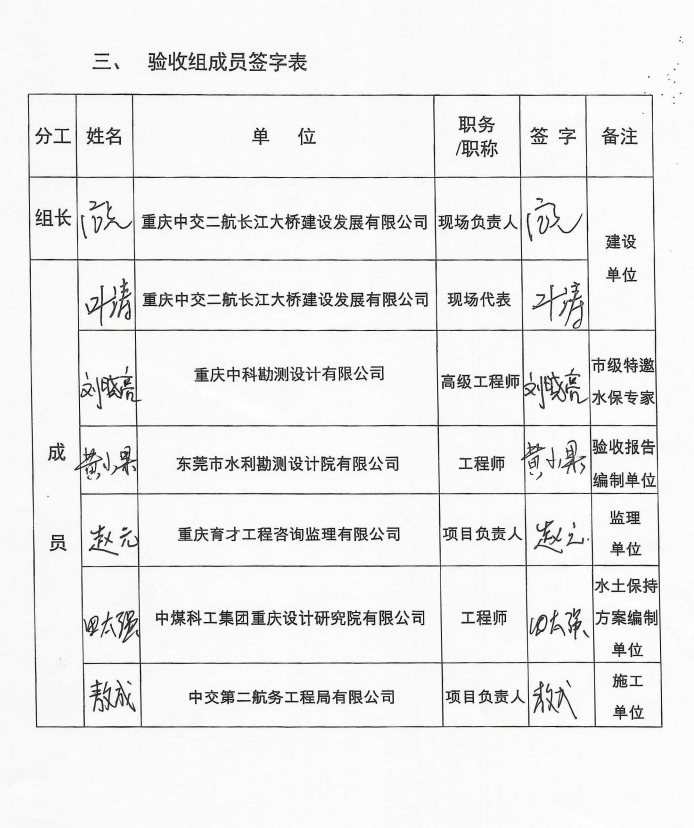 三、 验收组成员签字表
分工 姓名 单 位 职务/职称 签 字 备注
组长 重庆中交二航长江大桥建设发展有限公司 现场负责人 建设单位
成员 叶涛 重庆中交二航长江大桥建设发展有限公司 现场代表 叶涛
刘晓亮 重庆中科勘测设计有限公司 高级工程师 刘晓亮 市级特邀水保专家
黄小果 东莞市水利勘测设计院有限公司 工程师 黄小果 验收报告编制单位
赵元 重庆育才工程咨询监理有限公司 项目负责人 赵元 监理单位
田太强 中煤科工集团重庆设计研究院有限公司 工程师 田太强 水土保持方案编制单位
敖成 中交第二航务工程局有限公司 项目负责人 敖成 施工单位